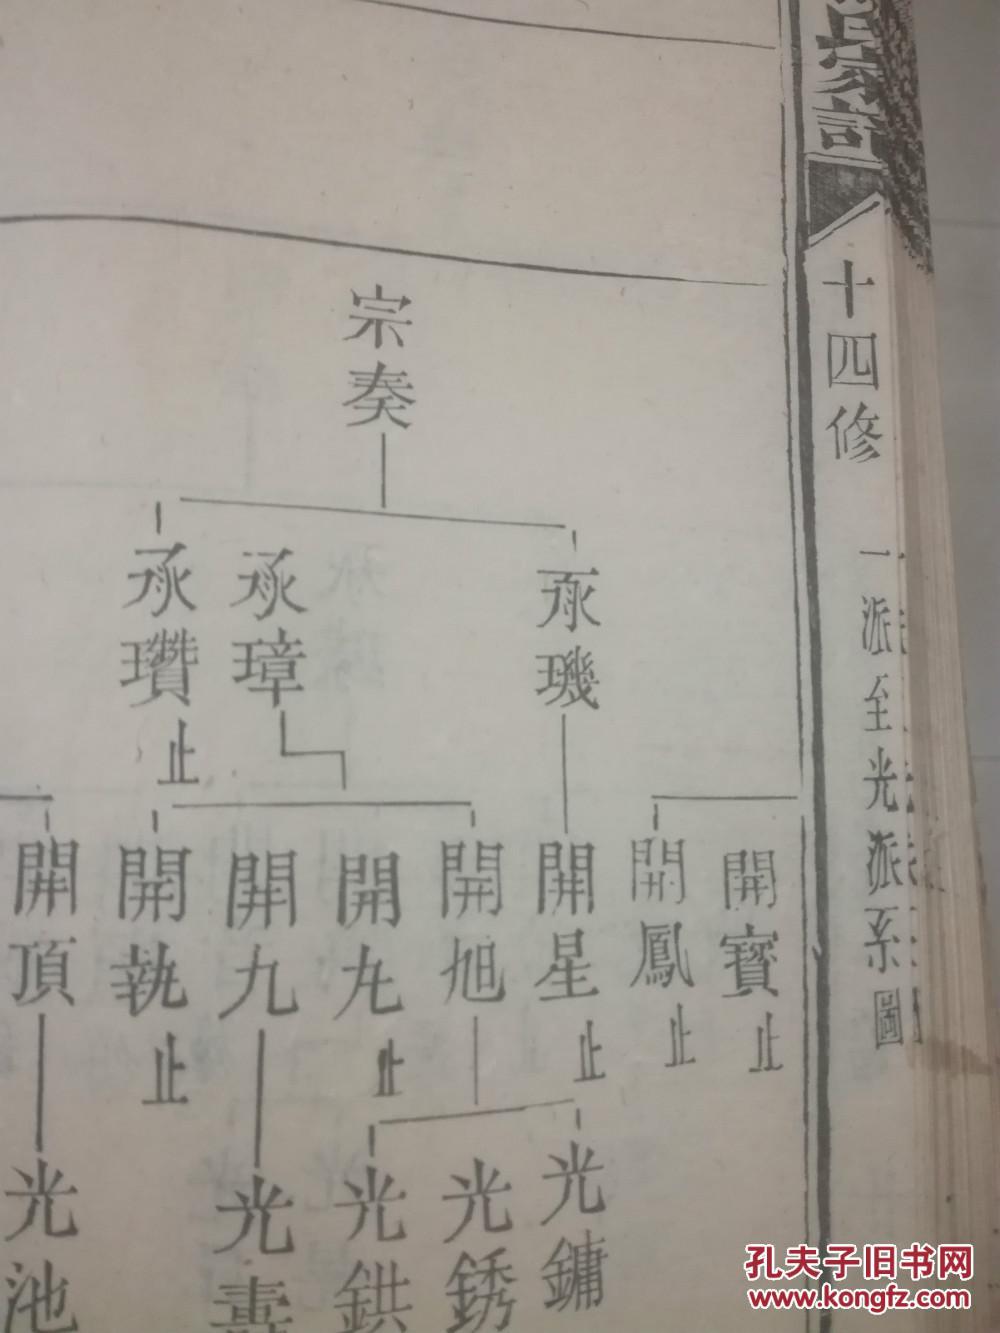 氏家記
十四修
一派至光派系圖
宗奏
承璣
承璋
承瓚止
開寶止
開鳳止
開星止
開旭
開九
開執止
開頂
光鏞
光銹
光鉷
光壽
光池
孔夫子旧书网
www.kongfz.com